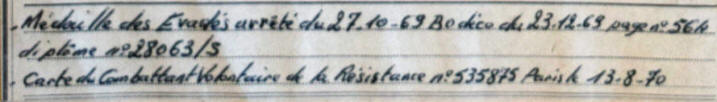 . Médaille des Evadés arrêté du 27-10-69 Bo dico du 23.12.69 page nº 564
diplôme nº 28063/S
. Carte du Combattant Volontaire de la Résistance nº 535875 Paris le 13-8-70